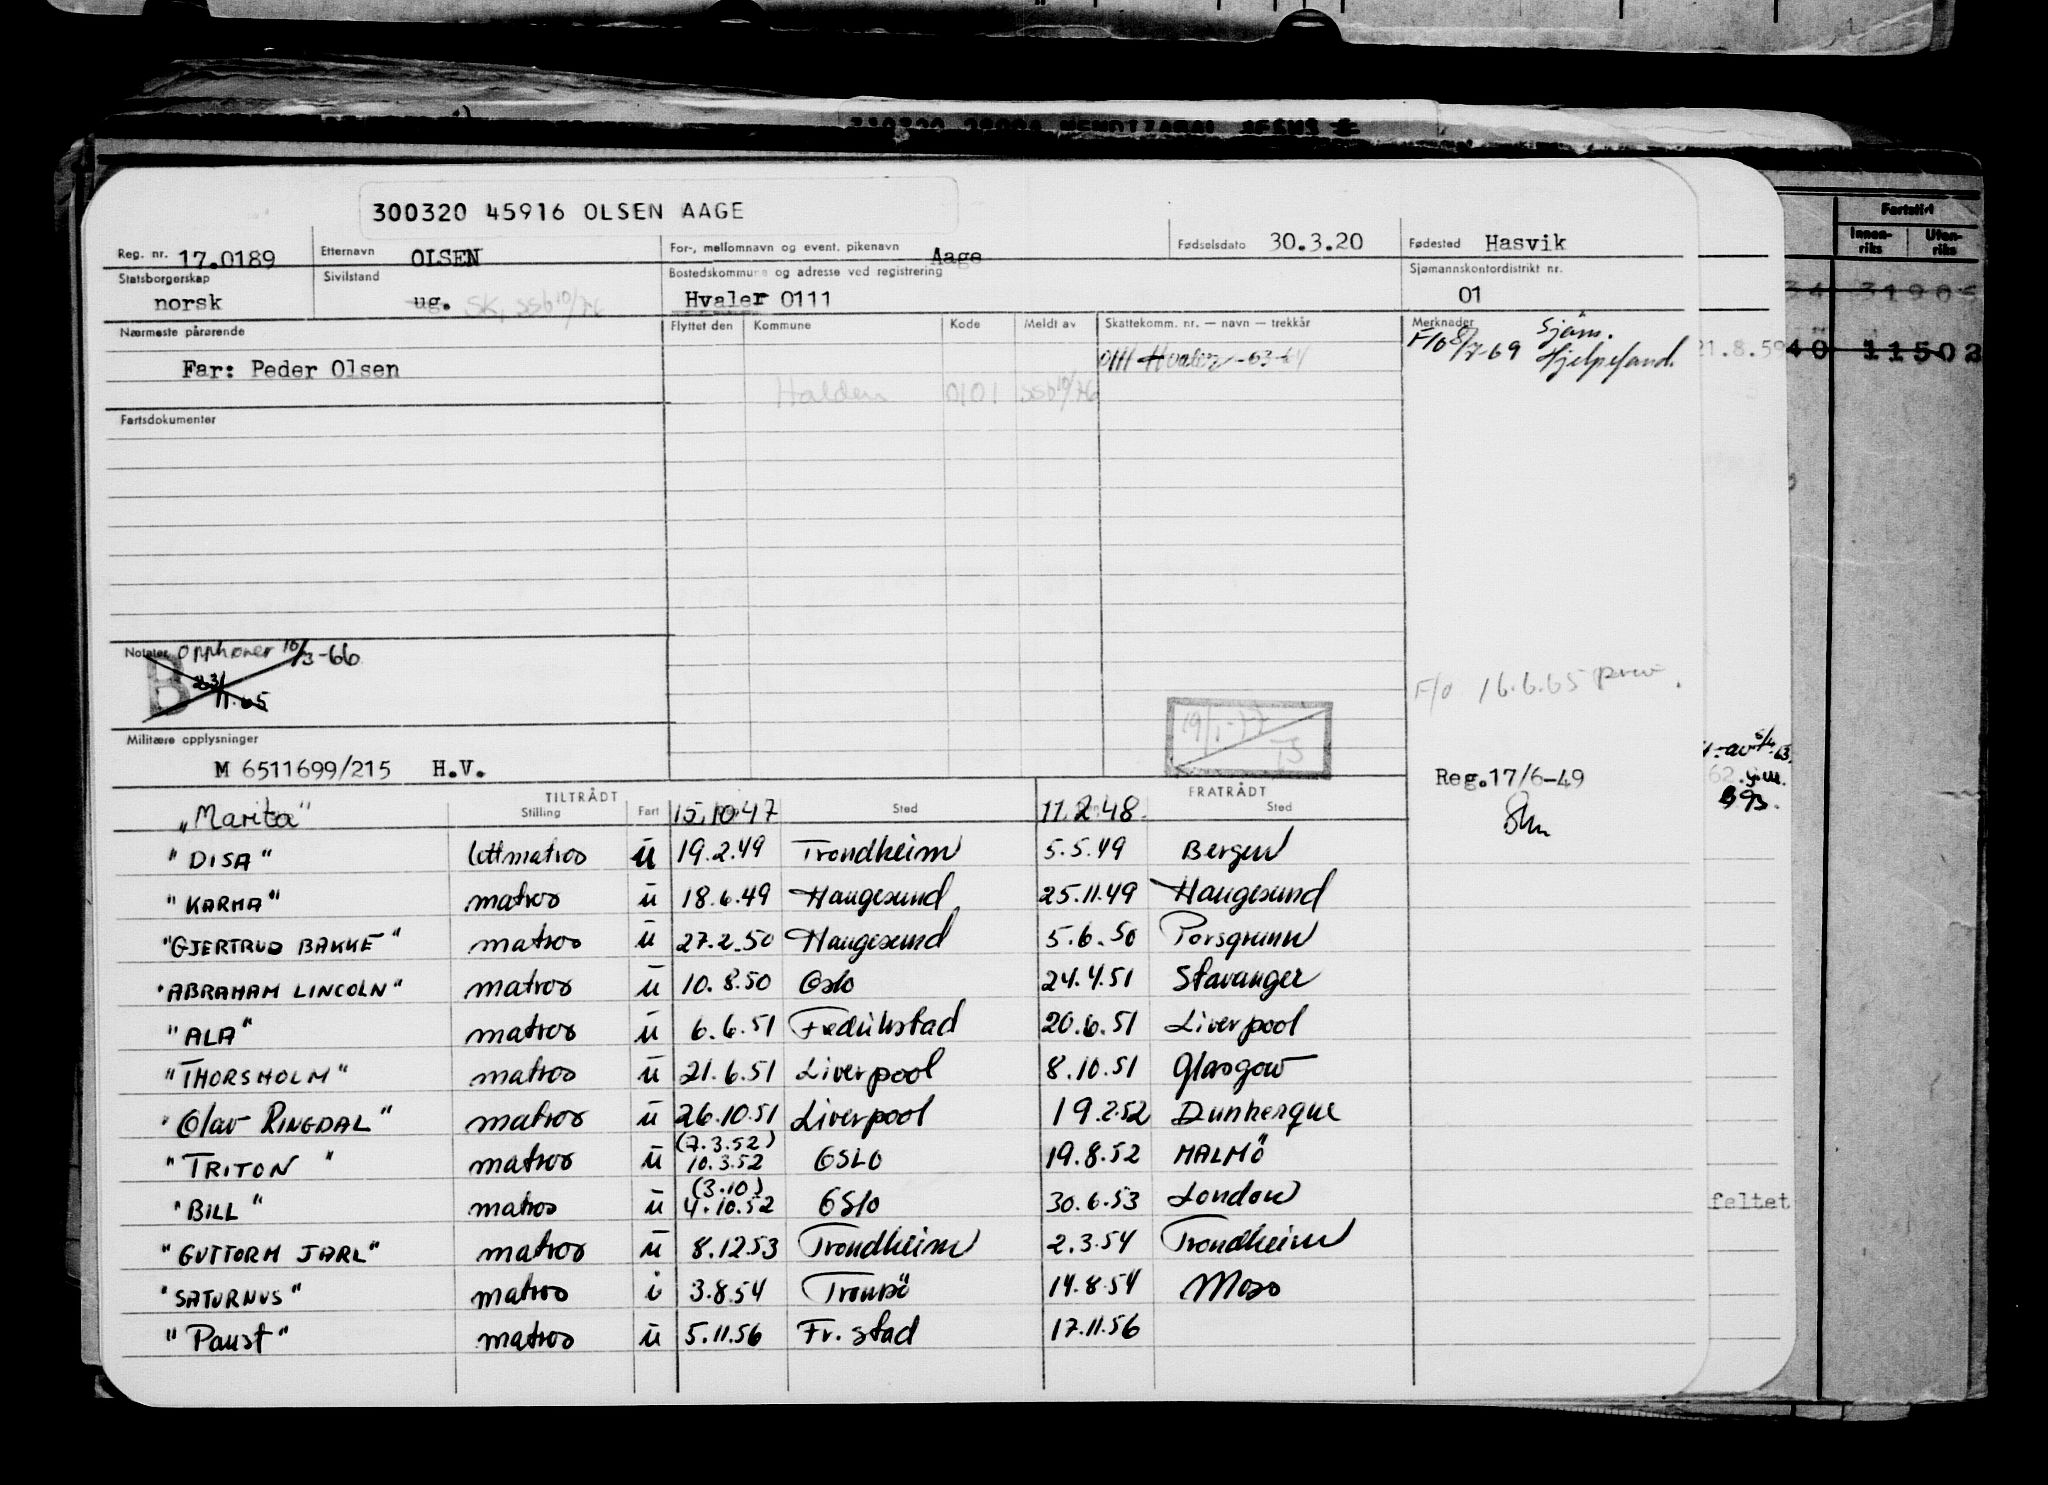 300320 45916 OLSEN AAGE
Reg. nr. 17.0189 Etternavn OLSEN For-, mellomnavn og event. pikenavn Aage Fødselsdato 30.3.20 Fødested Hasvik
Statsborgerskap norsk Sivilstand ug. Bostedskommune og adresse ved registrering Hvaler 0111 Sjømannskontordistrikt nr. 01
Nærmeste pårørende Flyttet den Kommune Kode Meldt av Skattekomm. nr. — navn — trekkår Merknader
Far: Peder Olsen 0111 Hvaler -63-64 F/o 8/7-69 Sjøm. Hjelpefond.
Halden 0101 SSb 10/76
Fartsdokumenter
Notater Opphører 10/3-66
B 23/11.65
F/o 16.6.65
19/1-77
Militære opplysninger
M 6511699/215 H.V. Reg.17/6-49
TILTRÅDT FRATRÅDT
Stilling Fart Sted Sted
"Marita" 15.10.47 11.2.48
"DISA" lettmatros u 19.2.49 Trondheim 5.5.49 Bergen
"KARMA" matros u 18.6.49 Haugesund 25.11.49 Haugesund
"GJERTRUD BAKKE" matros u 27.2.50 Haugesund 5.6.50 Porsgrunn
"ABRAHAM LINCOLN" matros u 10.8.50 Oslo 24.4.51 Stavanger
"ALA" matros u 6.6.51 Fredrikstad 20.6.51 Liverpool
"THORSHOLM" matros u 21.6.51 Liverpool 8.10.51 Glasgow
"Olav RINGDAL" matros u 26.10.51 Liverpool 19.2.52 Dunkerque
(7.3.52)
"TRITON" matros u 10.3.52 OSLO 19.8.52 MALMÖ
(3.10)
"BILL" matros u 4.10.52 Oslo 30.6.53 London
"GUTTORM JARL" matros u 8.12.53 Trondheim 2.3.54 Trondheim
"SATURNUS" matros i 3.8.54 Tromsö 14.8.54 Moss
"Paust" matros u 5.11.56 Fr. stad 17.11.56
Fartstid
Innen-riks Uten-riks
34 3190
21.8.59 40 11502
feltet